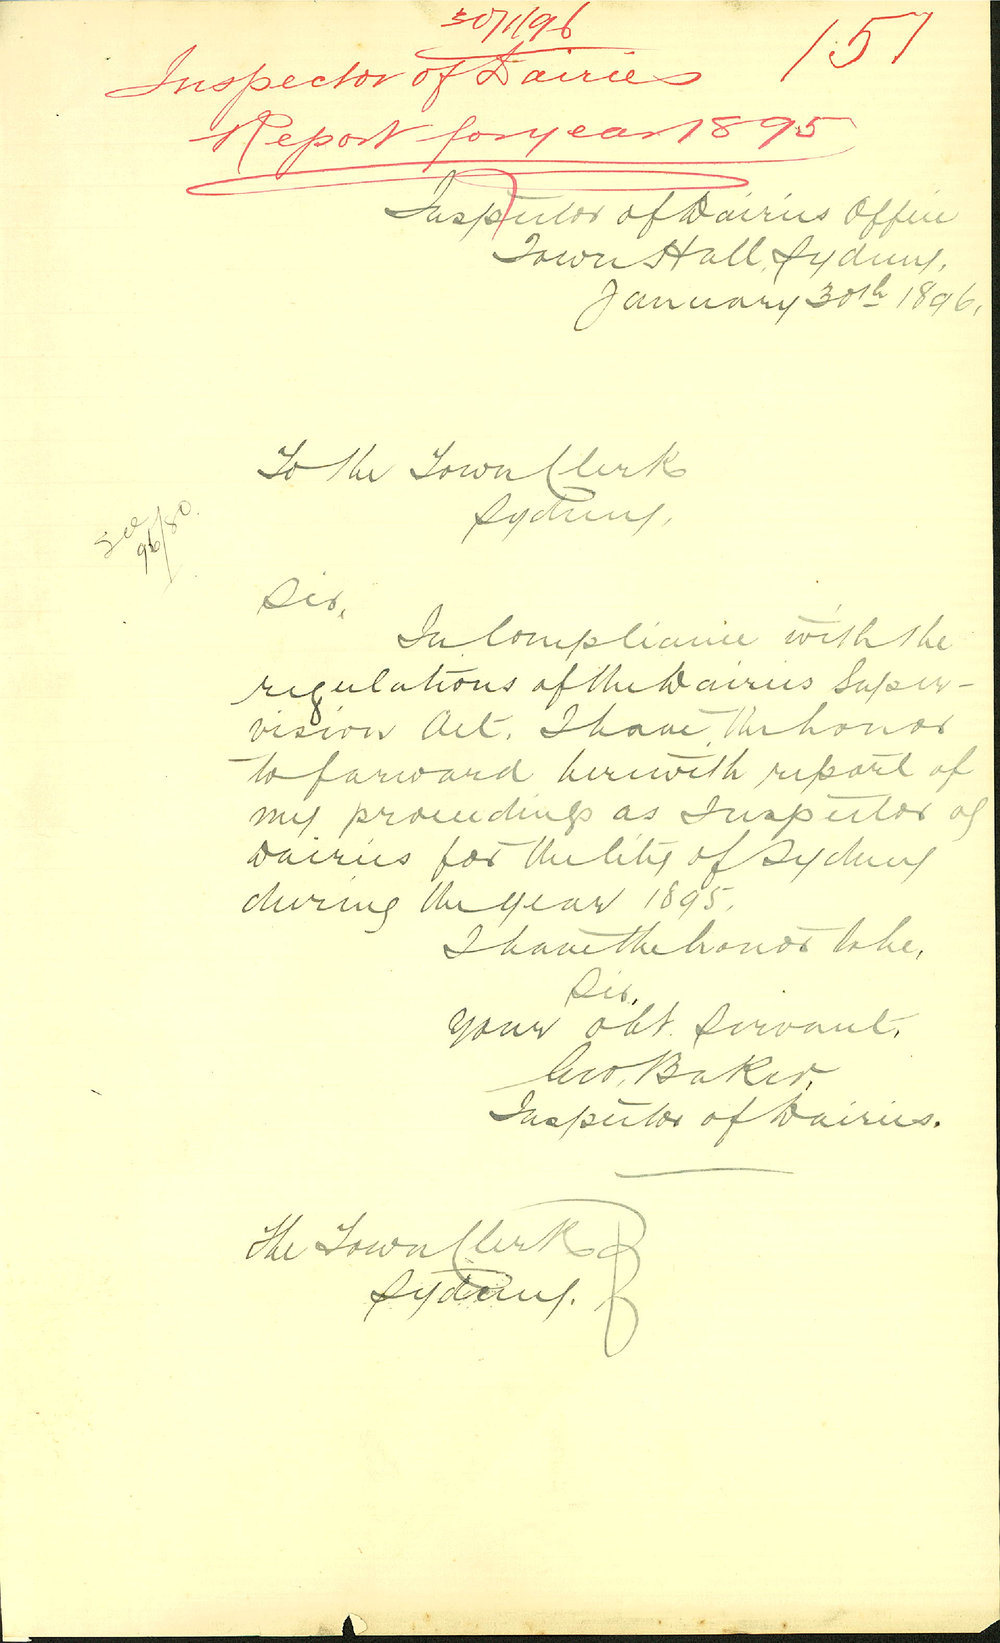 30/1/96
157
Inspector of Dairies
Report for year 1895
Inspector of Dairies Office
Town Hall, Sydney,
January 30th 1896,
To the Town Clerk
Sydney,
See
96/80.
Sir,
In Compliance with the
regulations of the Dairies Super-
vision Act. I have, the honor
to forward herewith report of
my proceedings as Inspector of
Dairies for the City of Sydney
during the year 1895.
I have the honor to be,
Sir,
Your obt. Servant,
Geo. Baker,
Inspector of Dairies.
The Town Clerk
Sydney.